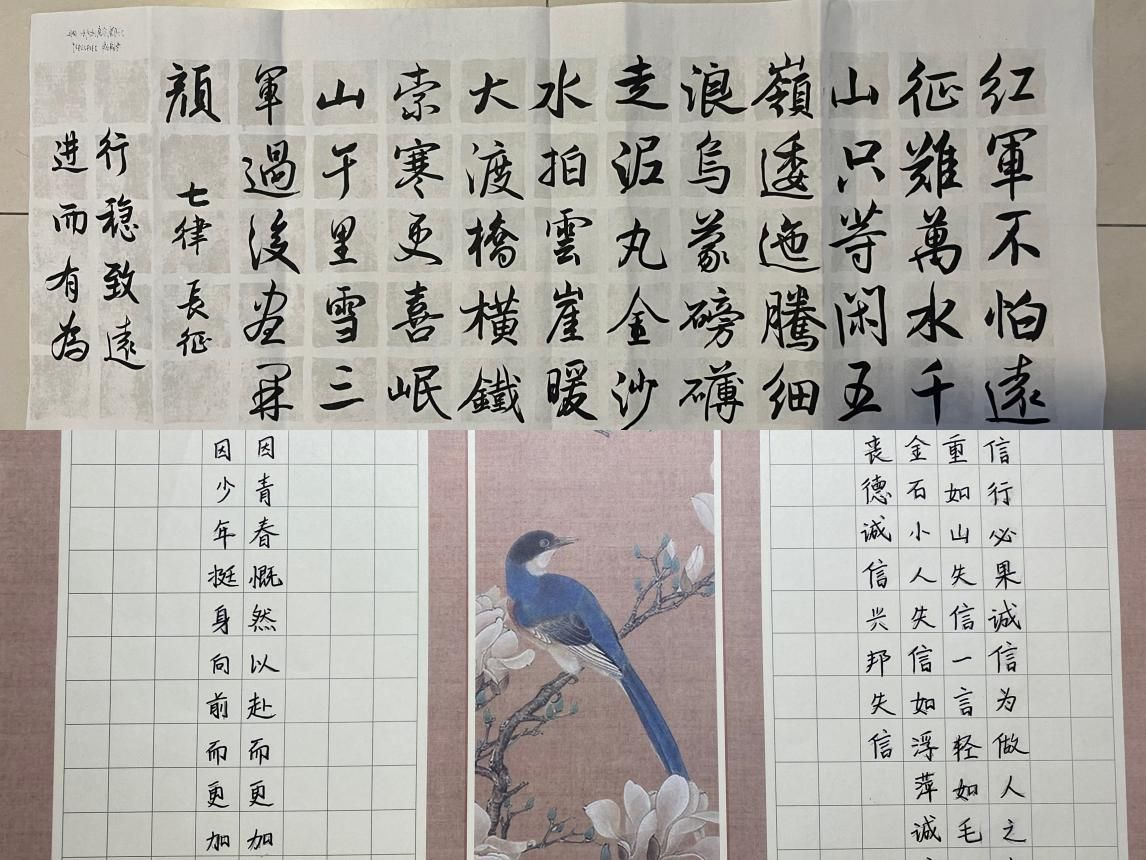 红軍不怕遠
征難萬水千
山只等闲五
嶺逶迤騰细
浪烏蒙磅礴
走泥丸金沙
水拍雲崖暖
大渡橋橫鐵
索寒更喜岷
山千里雪三
軍過後盡開
顔
七律 長征
行稳致遠
进而有為
信行必果诚信为做人之
重如山失信一言轻如毛
金石小人失信如浮萍诚
丧德诚信兴邦失信
因青春慨然以赴而更加
因少年挺身向前而更加